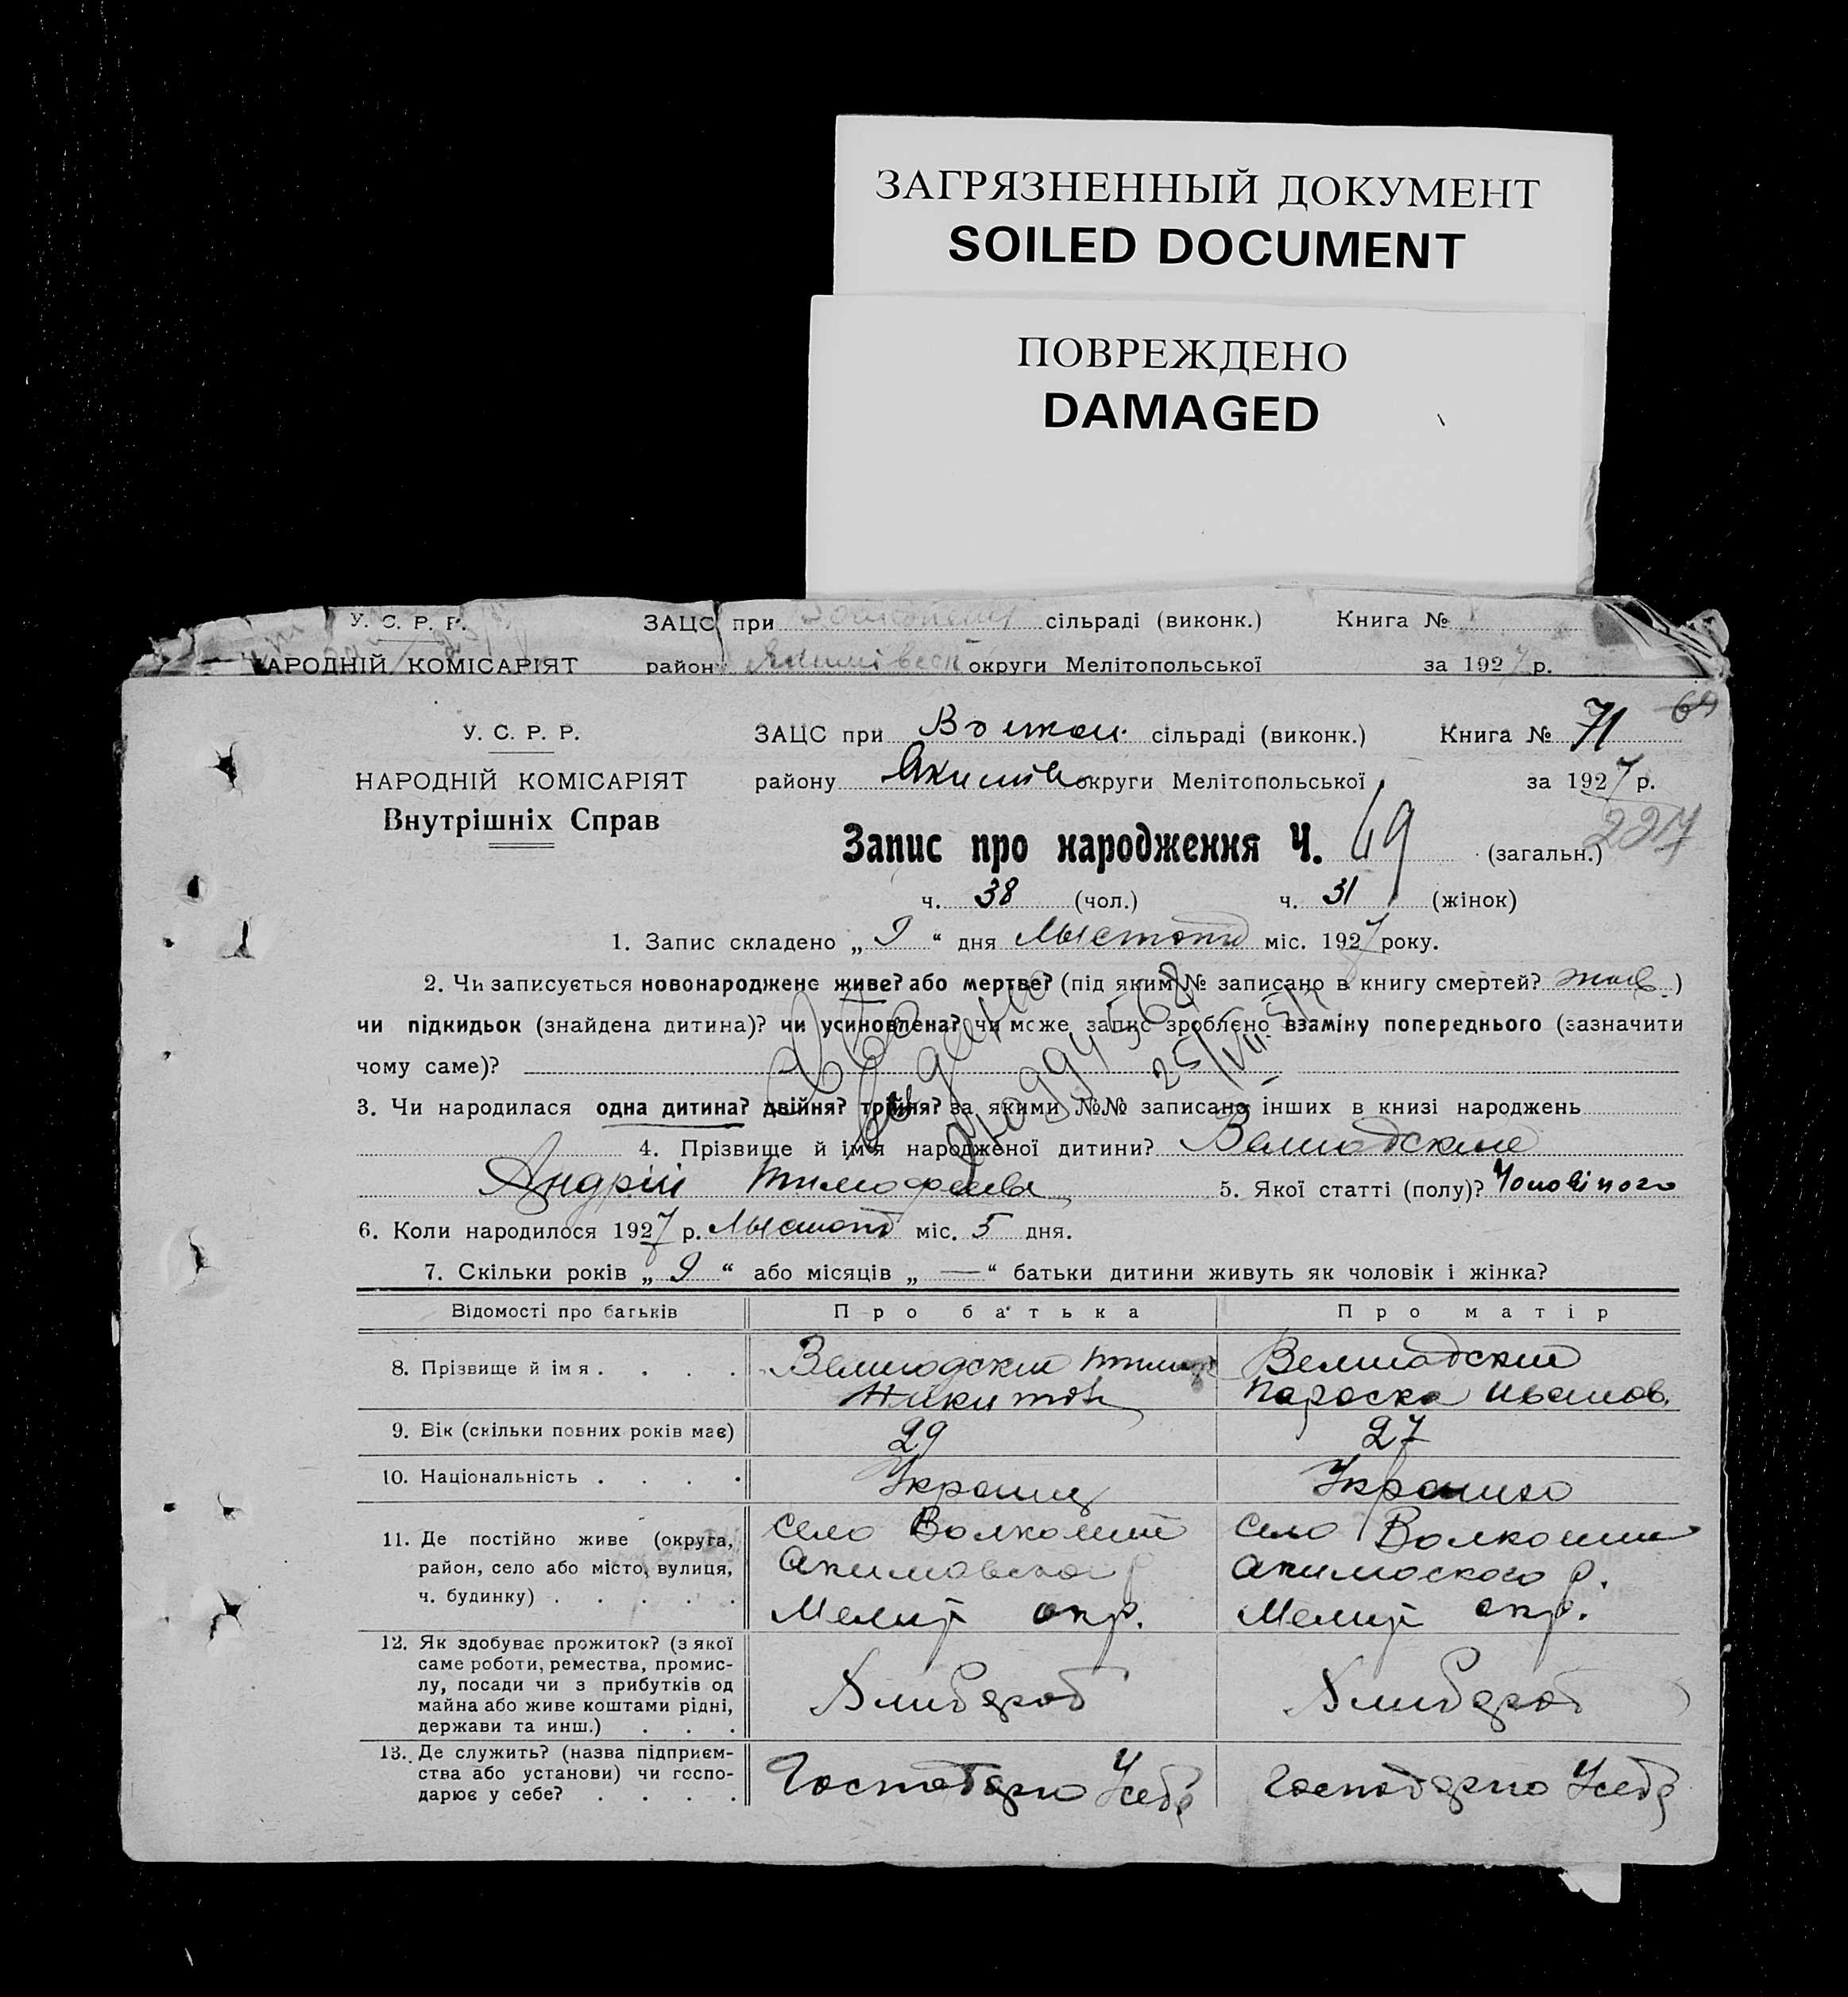 ЗАГРЯЗНЕННЫЙ ДОКУМЕНТ
SOILED DOCUMENT
ПОВРЕЖДЕНО
DAMAGED
У. С. Р. Р. ЗАЦС при сільраді (виконк.) Книга №
НАРОДНІЙ КОМІСАРІЯТ район округи Мелітопольської за 1927 р.
64
У. С. Р. Р. ЗАЦС при Волкон. сільраді (виконк.) Книга № 71
НАРОДНІЙ КОМІСАРІЯТ району Якимів округи Мелітопольської за 1927 р.
Внутрішніх Справ
227
Запис про народження Ч. 69 (загальн.)
ч. 38 (чол.) ч. 31 (жінок)
1. Запис складено „ 9 “ дня Лыстопад міс. 1927 року.
2. Чи записується новонароджене живе? або мертве? (під яким № записано в книгу смертей? жив. )
чи підкидьок (знайдена дитина)? чи усиновлена? чи може запис зроблено взаміну попереднього (зазначити
чому саме)?
25/VII
3. Чи народилася одна дитина? двійня? трійня? за якими №№ записано інших в книзі народжень
4. Прізвище й ім'я народженої дитини?
Андрій Тимофеев 5. Якої статті (полу)? Чоловічого
6. Коли народилося 1927 р. Лыстопад міс. 5 дня.
7. Скільки років „ 9 “ або місяців „ — “ батьки дитини живуть як чоловік і жінка?
Відомості про батьків Про батька Про матір
8. Прізвище й ім'я . . . .
Никитов Параска Иванов.
9. Вік (скільки повних років має) 29 27
10. Національність . . . . Украинц Украинка
11. Де постійно живе (округа, село Волкони село Волкони
район, село або місто, вулиця, Акимовского р. Акимоского р.
ч. будинку) . . . . . Мелит окр. Мелит окр.
12. Як здобуває прожиток? (з якої
саме роботи, ремества, промис-
лу, посади чи з прибутків од Хлибороб Хлибороб
майна або живе коштами рідні,
держави та инш.) . . .
13. Де служить? (назва підприєм-
ства або установи) чи госпо- Господарю Усебе Господарю Усебе
дарює у себе? . . . .